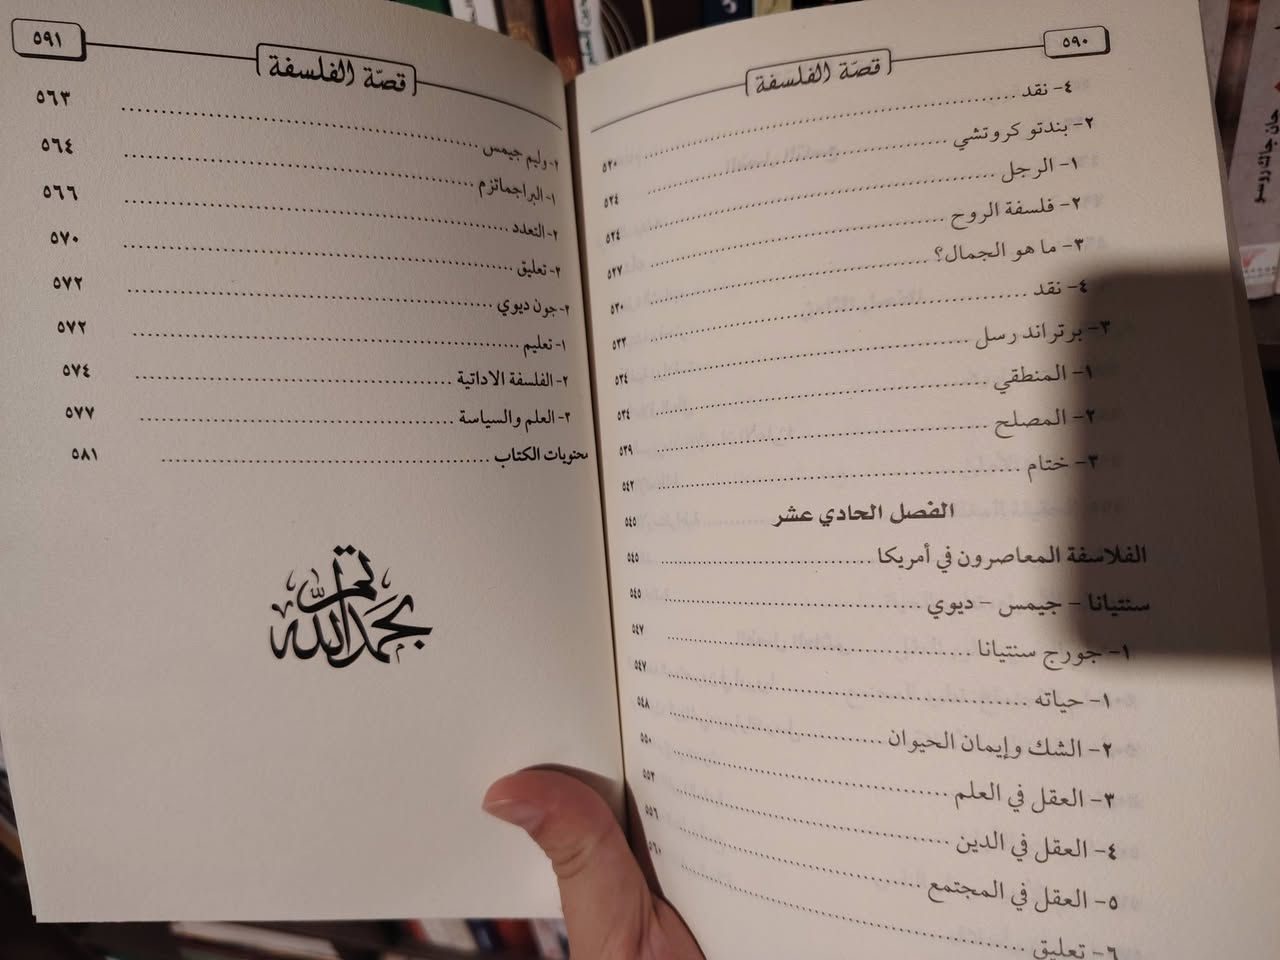 ٥٩٠
قصّة الفلسفة
٤- نقد ............ ٥٢٠
٢- بندتو كروتشي ............ ٥٢٤
١- الرجل ............ ٥٢٤
٢- فلسفة الروح ............ ٥٢٧
٣- ما هو الجمال؟ ............ ٥٣٠
٤- نقد ............ ٥٣٣
٣- برتراند رسل ............ ٥٣٤
١- المنطقي ............ ٥٣٤
٢- المصلح ............ ٥٣٩
٣- ختام ............ ٥٤٢
الفصل الحادي عشر ٥٤٥
الفلاسفة المعاصرون في أمريكا ............ ٥٤٥
سنتيانا - جيمس - ديوي ............ ٥٤٥
١- جورج سنتيانا ............ ٥٤٧
١- حياته ............ ٥٤٧
٢- الشك وإيمان الحيوان ............ ٥٤٨
٣- العقل في العلم ............ ٥٥٠
٤- العقل في الدين ............ ٥٥٣
٥- العقل في المجتمع ............ ٥٥٦
٦- تعليق ............ ٥٦٠
٥٩١
قصّة الفلسفة
٢- وليم جيمس ............ ٥٦٣
١- البراجماتزم ............ ٥٦٤
٢- التعدد ............ ٥٦٦
٣- تعليق ............ ٥٧٠
٣- جون ديوي ............ ٥٧٢
١- تعليم ............ ٥٧٢
٢- الفلسفة الاداتية ............ ٥٧٤
٣- العلم والسياسة ............ ٥٧٧
محتويات الكتاب ............ ٥٨١
تم بحمد الله